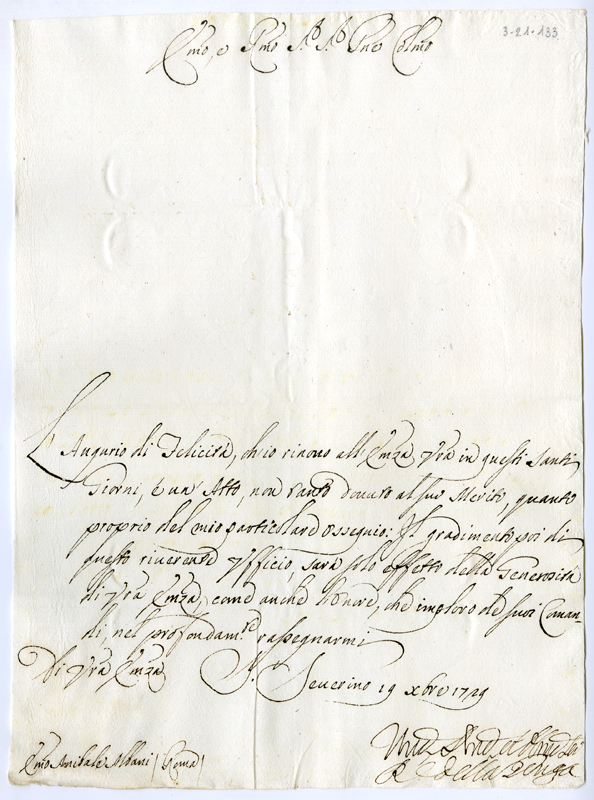 3-21-133
Emo, e Rmo Sig.r Sig.r Pne Colmo
L'Augurio di Felicità, ch'io rinovo all'Emza Vra in questi Santi
Giorni, è un Atto, non tanto dovuto al suo Merito, quanto
proprio del mio particolare ossequio: Il gradimento poi di
questo riverente Ufficio, sarà solo effetto della Generosità
di Vra Emza, come anche l'onore, che imploro de suoi Coman-
di, nel profondam.te rassegnarmi
Di Vra Emza S. Severino 19 Xbre 1729
Emo Annibale Albani / Roma /
Della Genga